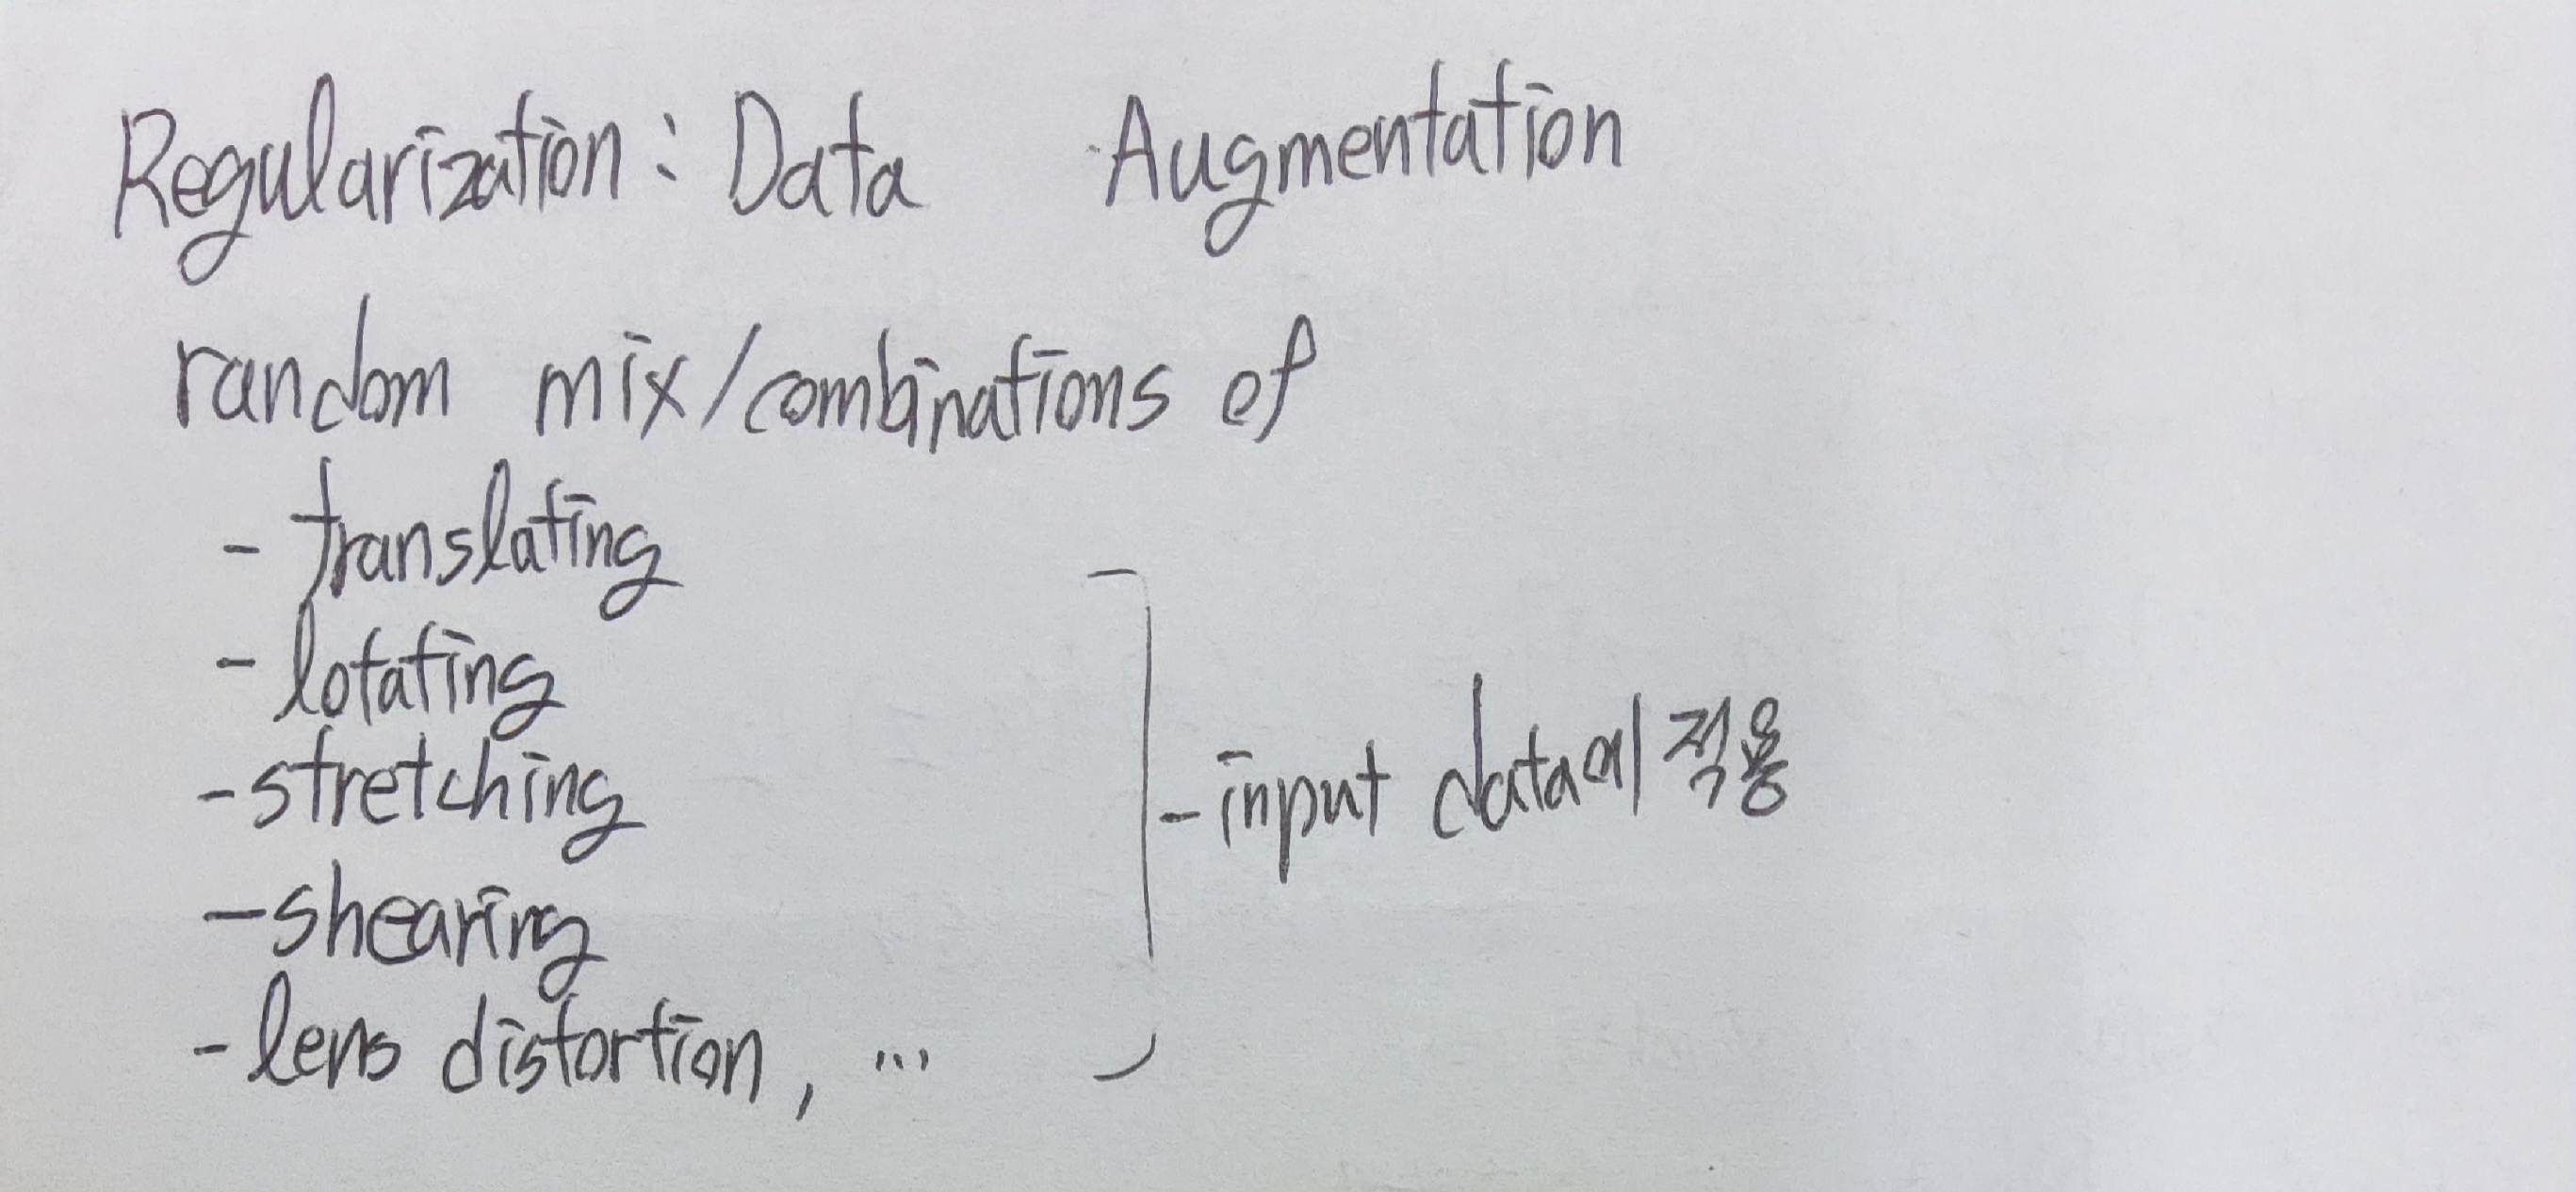 Regularization: Data Augmentation
random mix/combinations of
- translating
- lotating
- stretching
- shearing
- lens distortion, ...
- input data에 적용